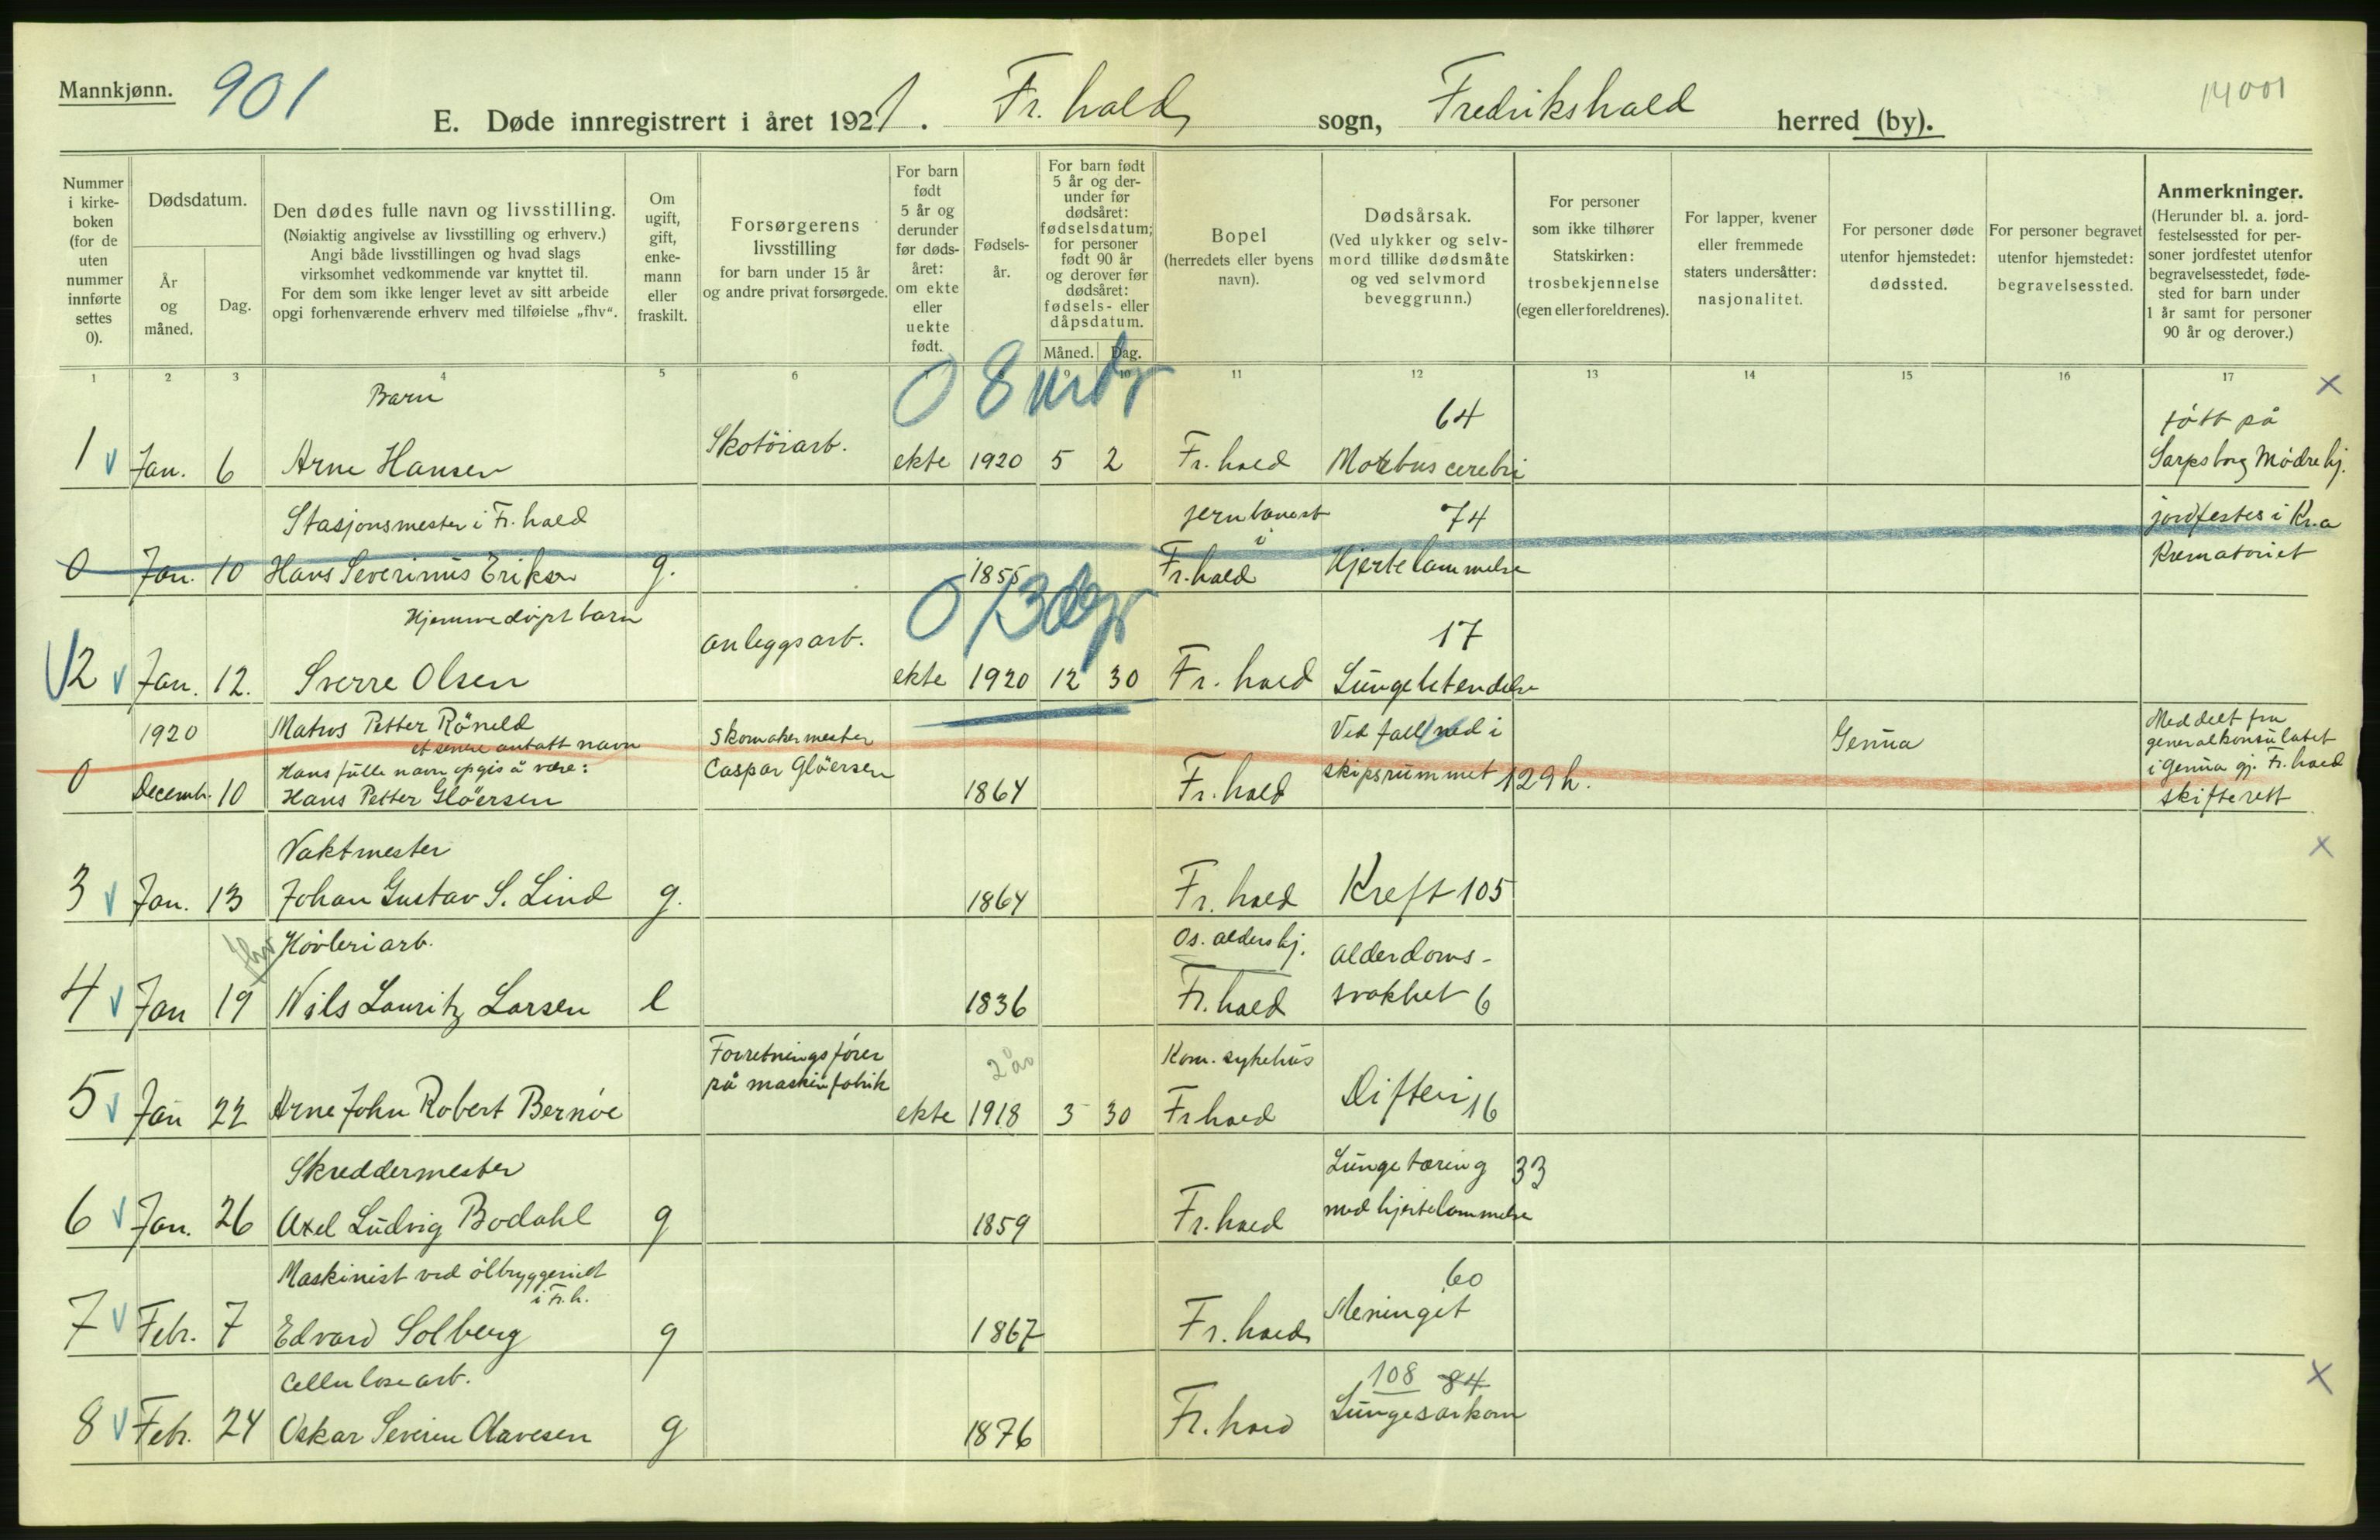 Mannkjønn.
901
14001
E. Døde innregistrert i året 1921. Fr. hald sogn, Fredrikshald herred (by).
Nummer i kirke-boken (for de uten nummer innførte settes 0).
Dødsdatum.
År og måned.
Dag.
Den dødes fulle navn og livsstilling.
(Nøiaktig angivelse av livsstilling og erhverv.)
Angi både livsstillingen og hvad slags
virksomhet vedkommende var knyttet til.
For dem som ikke lenger levet av sitt arbeide
opgi forhenværende erhverv med tilføielse „fhv“.
Om ugift, gift, enke-mann eller fraskilt.
Forsørgerens livsstilling
for barn under 15 år
og andre privat forsørgede.
For barn født 5 år og derunder før døds-året: om ekte eller uekte født.
Fødsels-år.
For barn født 5 år og der-under før dødsåret: fødselsdatum; for personer født 90 år og derover før dødsåret: fødsels- eller dåpsdatum.
Måned. Dag.
Bopel
(herredets eller byens navn).
Dødsårsak.
(Ved ulykker og selv-mord tillike dødsmåte og ved selvmord beveggrunn.)
For personer som ikke tilhører Statskirken: trosbekjennelse (egen eller foreldrenes).
For lapper, kvener eller fremmede staters undersåtter: nasjonalitet.
For personer døde utenfor hjemstedet: dødssted.
For personer begravet utenfor hjemstedet: begravelsessted.
Anmerkninger.
(Herunder bl. a. jord-festelsessted for per-soner jordfestet utenfor begravelsesstedet, føde-sted for barn under 1 år samt for personer 90 år og derover.)
1 2 3 4 5 6 7 8 9 10 11 12 13 14 15 16 17
Barn 0 8 mdr 64 født på
1 v Jan. 6 Arne Hansen Skotöiarb. ekte 1920 5 2 Fr. hald Morbus cerebri Sarpsborg Mødrehj.
Stasjonsmester i Fr. hald jernbanest 74 jordfestes i Kr.a
0 Jan. 10 Hans Severinus Eriksen g. 1855 i Fr. hald Hjertelammelse Krematoriet
Hjemmedøpt barn 0 13 dgr 17
2 v Jan. 12. Sverre Olsen anleggsarb. ekte 1920 12 30 Fr. hald Lungebetendelse
1920 Matros Petter Röneld Skomakermester Ved fall ned i Genua Meddelt fra
et senere antatt navn generalkonsulatet
Hans fulle navn opgis å være: Caspar Glöersen skipsrummet 129 h. i Genua gj. Fr. hald
0 Decemb. 10 Hans Petter Glöersen 1864 Fr. hald skifterett
Vaktmester
3 v Jan. 13 Johan Gustav S. Lind g. 1864 Fr. hald Kreft 105
fhv Høvleriarb. Os. aldershj. Alderdoms-
4 v Jan 19 Nils Lauritz Larsen e 1836 Fr. hald svakhet 6
Forretningsfører 2 år Kom. sykehus
på maskinfabrik
5 v Jan 22 Arne John Robert Bernöe ekte 1918 3 30 Fr hald Difteri 16
Skreddermester Lungetæring 33
6 v Jan. 26 Axel Ludvig Bodahl g 1859 Fr. hald med hjertelammelse
Maskinist ved ölbryggeriet 60
i Fr. h.
7 v Febr. 7 Edvard Solberg g 1867 Fr. hald Meningit
Cellulosearb. 108 84
8 v Febr. 24 Oskar Severin Olavesen g 1876 Fr. hald Lungesarkom